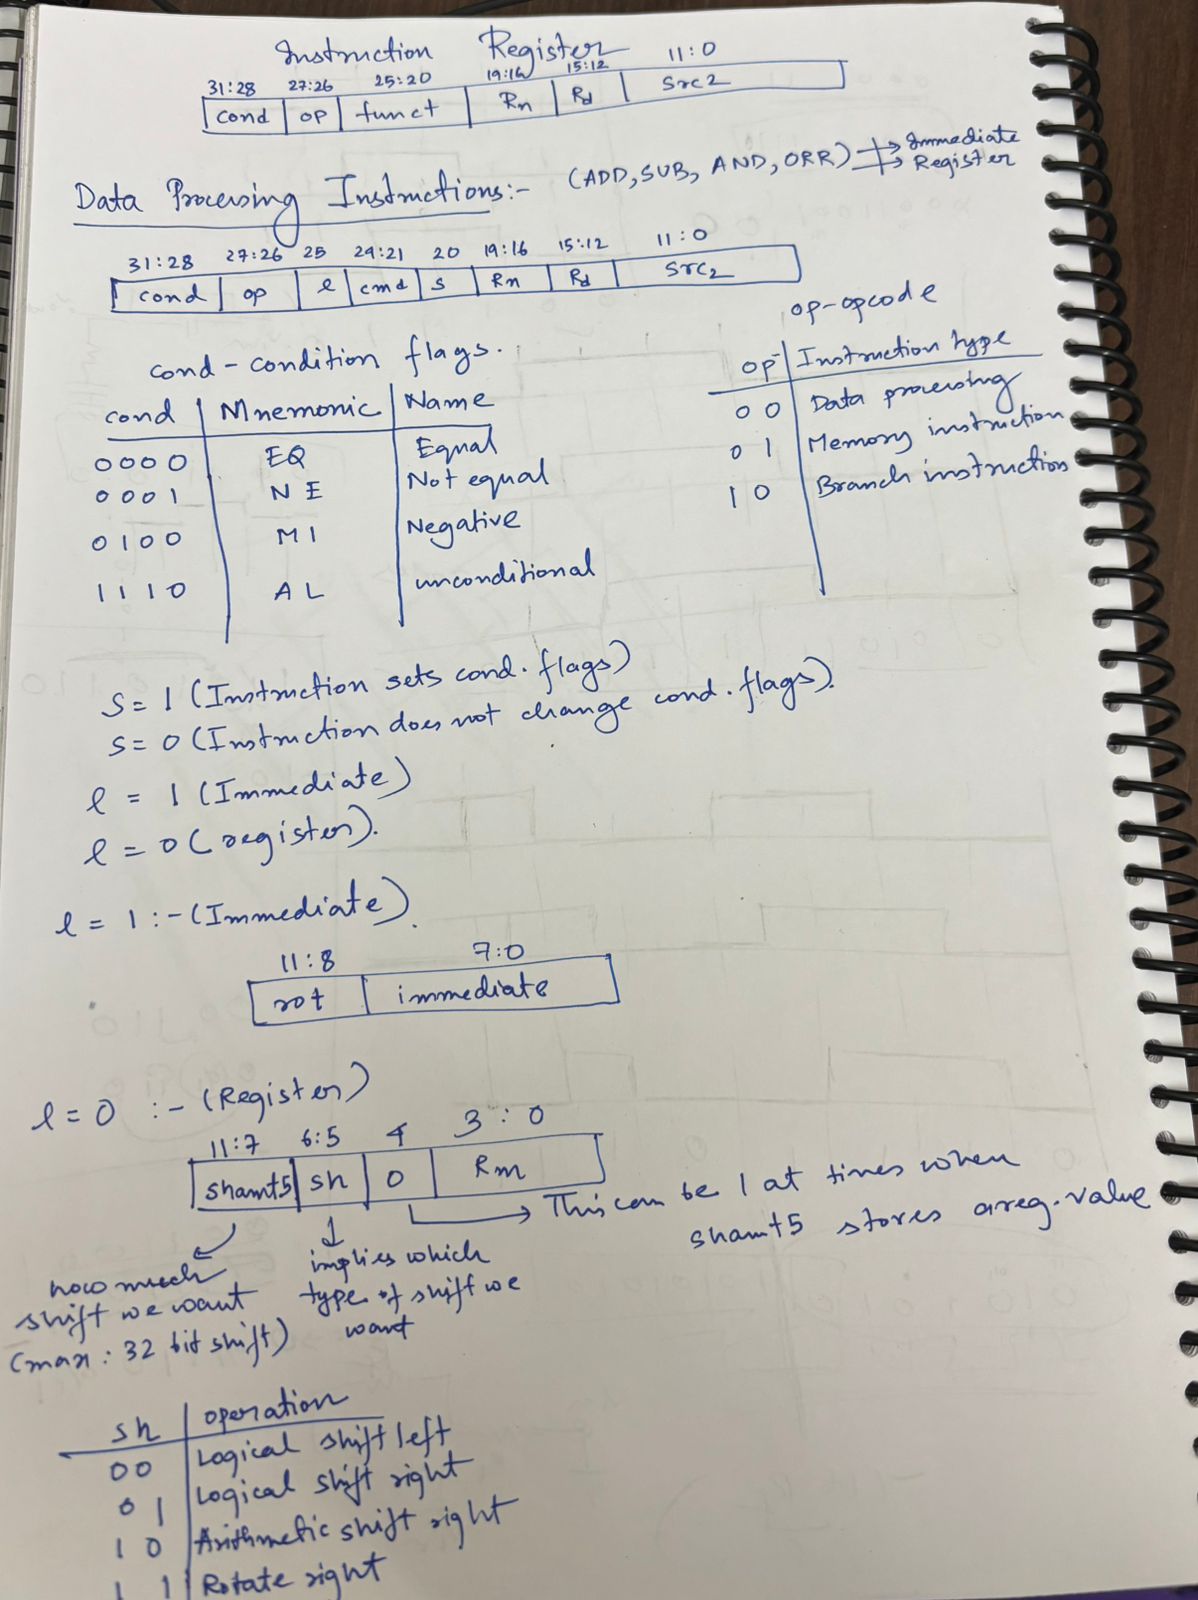 Instruction Register
31:28 27:26 25:20 19:16 15:12 11:0
cond op funct Rn Rd Src2
Data Processing Instructions:- (ADD, SUB, AND, ORR) → Immediate
→ Register
31:28 27:26 25 24:21 20 19:16 15:12 11:0
cond op l cmd s Rn Rd Src2
op-opcode
cond - condition flags.
op Instruction type
0 0 Data processing
0 1 Memory instruction
1 0 Branch instruction
cond Mnemonic Name
0000 EQ Equal
0001 NE Not equal
0100 MI Negative
1110 AL unconditional
S = 1 (Instruction sets cond. flags)
S = 0 (Instruction does not change cond. flags).
l = 1 (Immediate)
l = 0 (register).
l = 1 :- (Immediate).
11:8 7:0
rot immediate
l = 0 :- (Register)
11:7 6:5 4 3:0
shamt5 sh 0 Rm
→ This can be 1 at times when
shamt5 stores a reg. value
how much
shift we want
(max : 32 bit shift)
implies which
type of shift we
want
sh operation
00 Logical shift left
01 Logical shift right
10 Arithmetic shift right
11 Rotate right